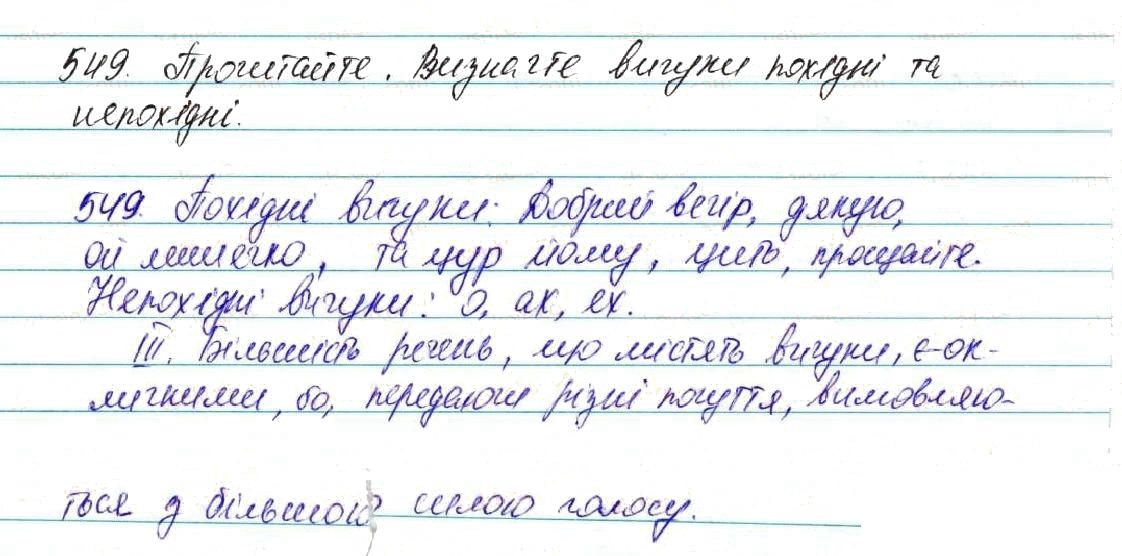 549. Прочитайте. Визначте вигуки похідні та
непохідні.
549. Похідні вигуки: Добрий вечір, дякую,
ой лишечко, та цур йому, цить, прощайте.
Непохідні вигуки: о, ах, ех.
III. Більшість речень, що містять вигуки, є ок-
личними, бо, передаючи різні почуття, вимовляю-
ться з більшою силою голосу.